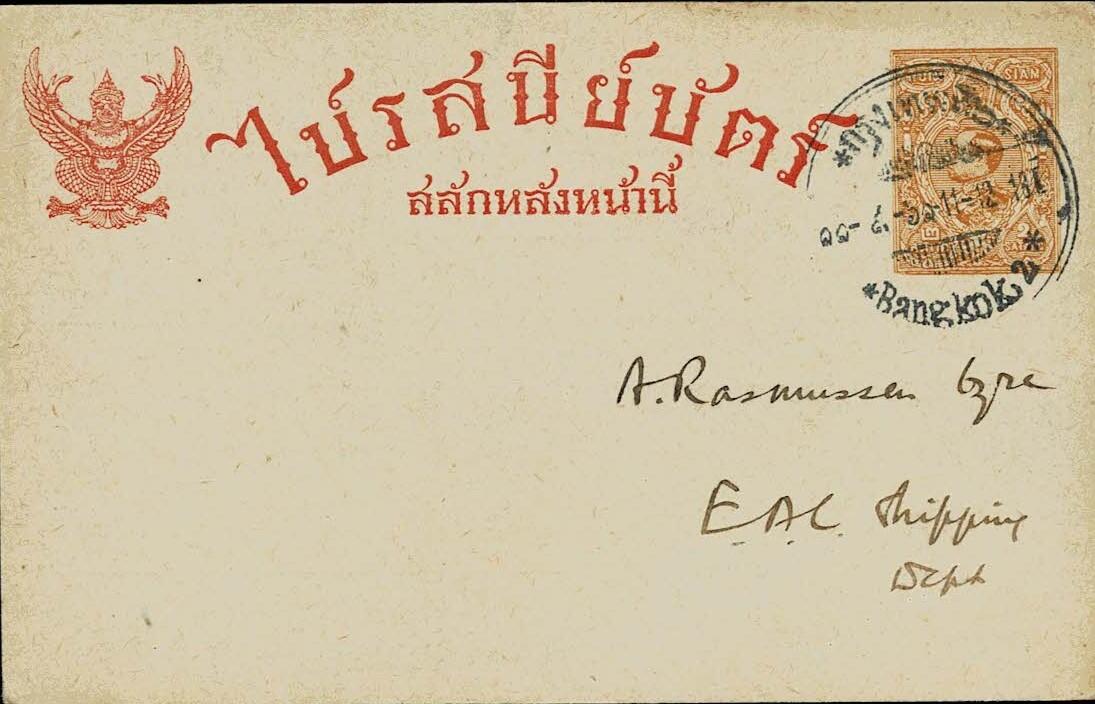 ไปรสนียบัตร
สลักหลังหน้านี้
SIAM
๑๑-๘-๖๑-11-12-18
*Bangkok 2*
A. Rasmussen Esqre
E.A.C. Shipping
Dept